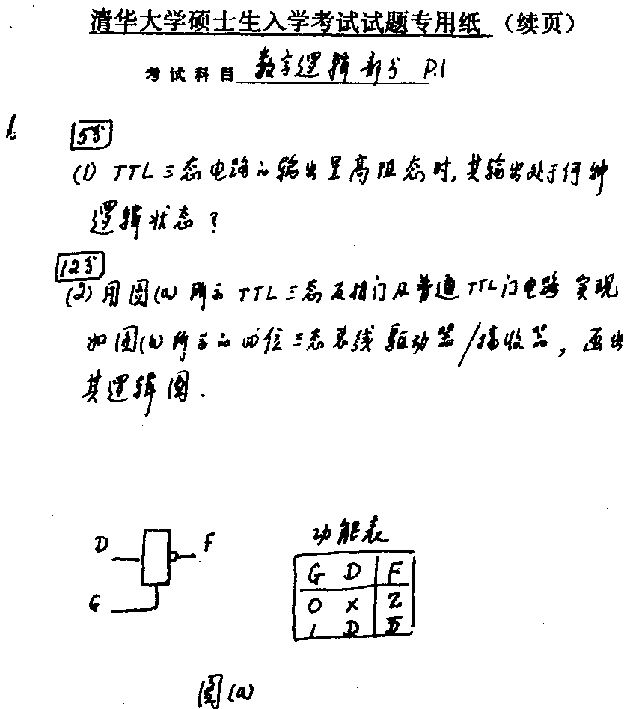 清华大学硕士生入学考试试题专用纸 (续页)
考试科目 数字逻辑部分 P.1
1. 5分
(1) TTL三态电路的输出呈高阻态时,其输出处于何种
逻辑状态?
12分
(2) 用图(a)所示TTL三态反相门及普通TTL门电路实现
如图(b)所示的四位三态总线驱动器/接收器,画出
其逻辑图.
D F
G
功能表
G D F
0 × Z
1 D D̅
图(a)